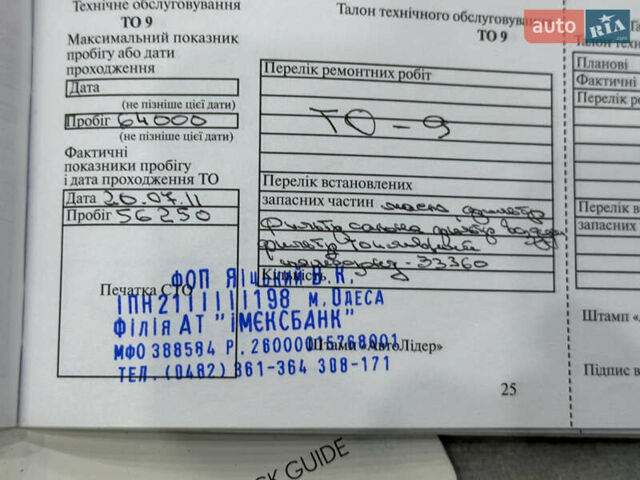 Технічне обслуговування
ТО 9
Максимальний показник
пробігу або дати
проходження
Дата
(не пізніше цієї дати)
Пробіг 64000
(не пізніше цієї дати)
Фактичні
показники пробігу
і дата проходження ТО
Дата 20.07.11
Пробіг 56250
Печатка СТО
Талон технічного обслуговуван
ТО 9
Перелік ремонтних робіт
ТО - 9
Перелік встановлених
запасних частин масло, фильтр
Фильтр салона фильтр воздуш
фильтр топливный
- 33360
Кількість
ФОП Яіцький В.К.
ІПН2111111198 м.Одеса
Філія АТ "ІМЄКСБАНК"
МФО 388584 Р. 26000015768001
ТЕЛ. (0482) 361-364 308-171
Штамп «АвтоЛідер»
25
Талон техн
Планові
Фактичні
Перелік р
Перелік в
запасних
Штамп «А
Підпис в
auto RIA.com
CK GUIDE